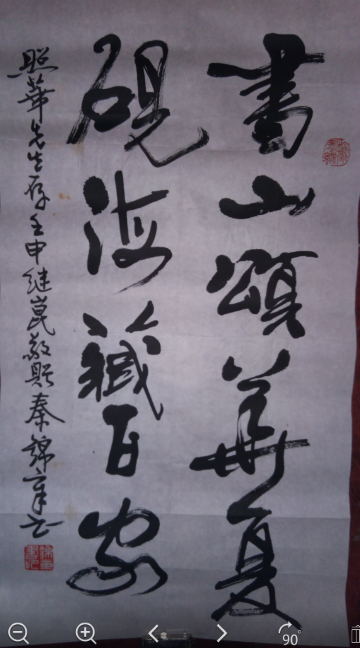 書山頌華夏
硯海藏百家
照華先生存壬申继崑敬贈秦錦章書
90°